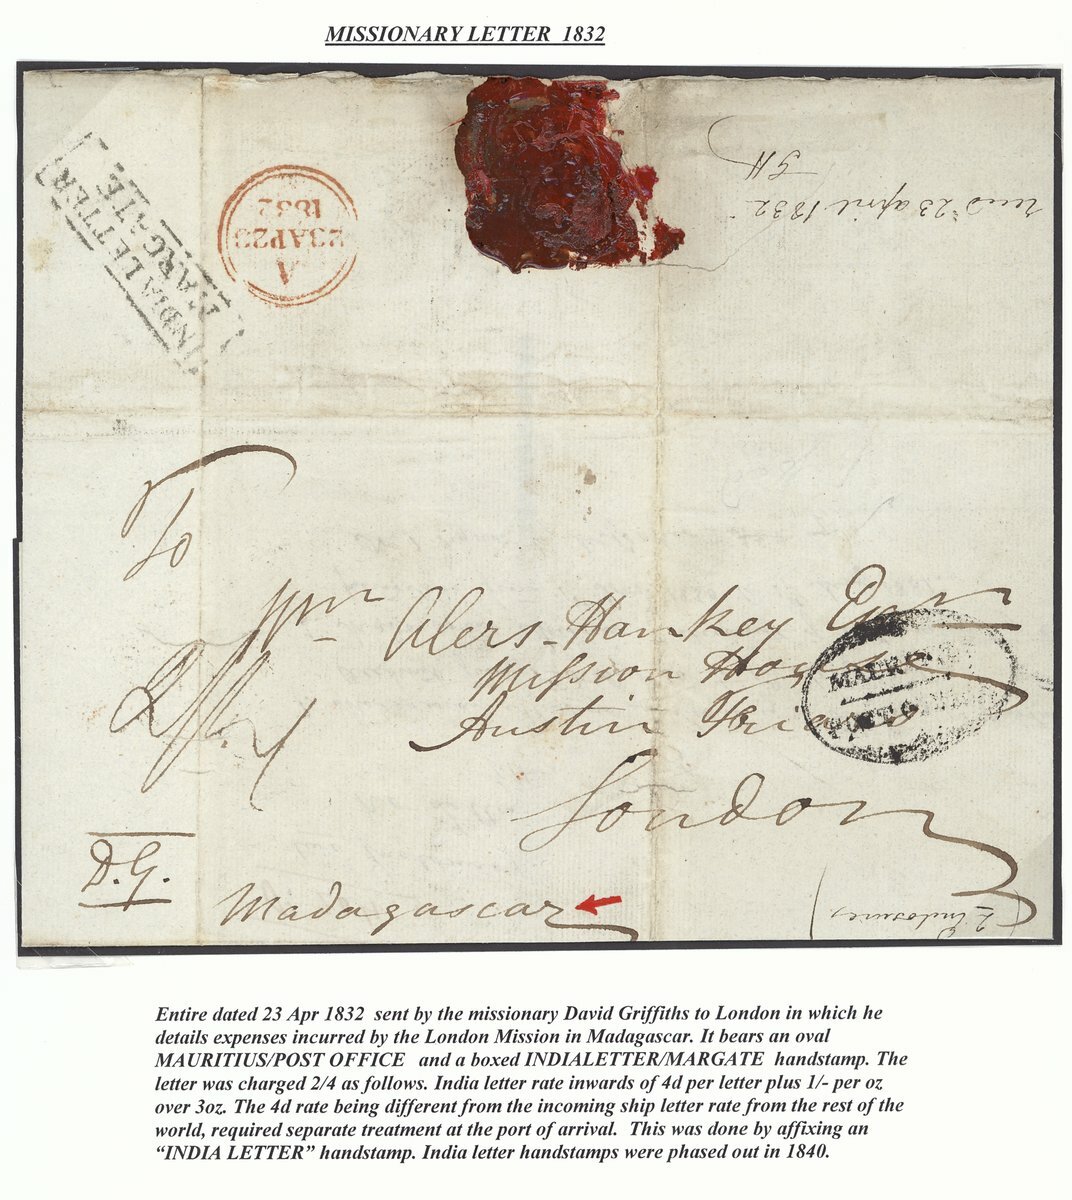 MISSIONARY LETTER 1832
INDIA LETTER
MARGATE
A
23AP23
1832
23 april 1832
To
Wm Alers Hankey Esqr
Mission House
Austin Friars
London
2/4
MAURITIUS
POST OFFICE
D.G.
Madagascar
2 Enclosures
Entire dated 23 Apr 1832 sent by the missionary David Griffiths to London in which he
details expenses incurred by the London Mission in Madagascar. It bears an oval
MAURITIUS/POST OFFICE and a boxed INDIALETTER/MARGATE handstamp. The
letter was charged 2/4 as follows. India letter rate inwards of 4d per letter plus 1/- per oz
over 3oz. The 4d rate being different from the incoming ship letter rate from the rest of the
world, required separate treatment at the port of arrival. This was done by affixing an
“INDIA LETTER” handstamp. India letter handstamps were phased out in 1840.